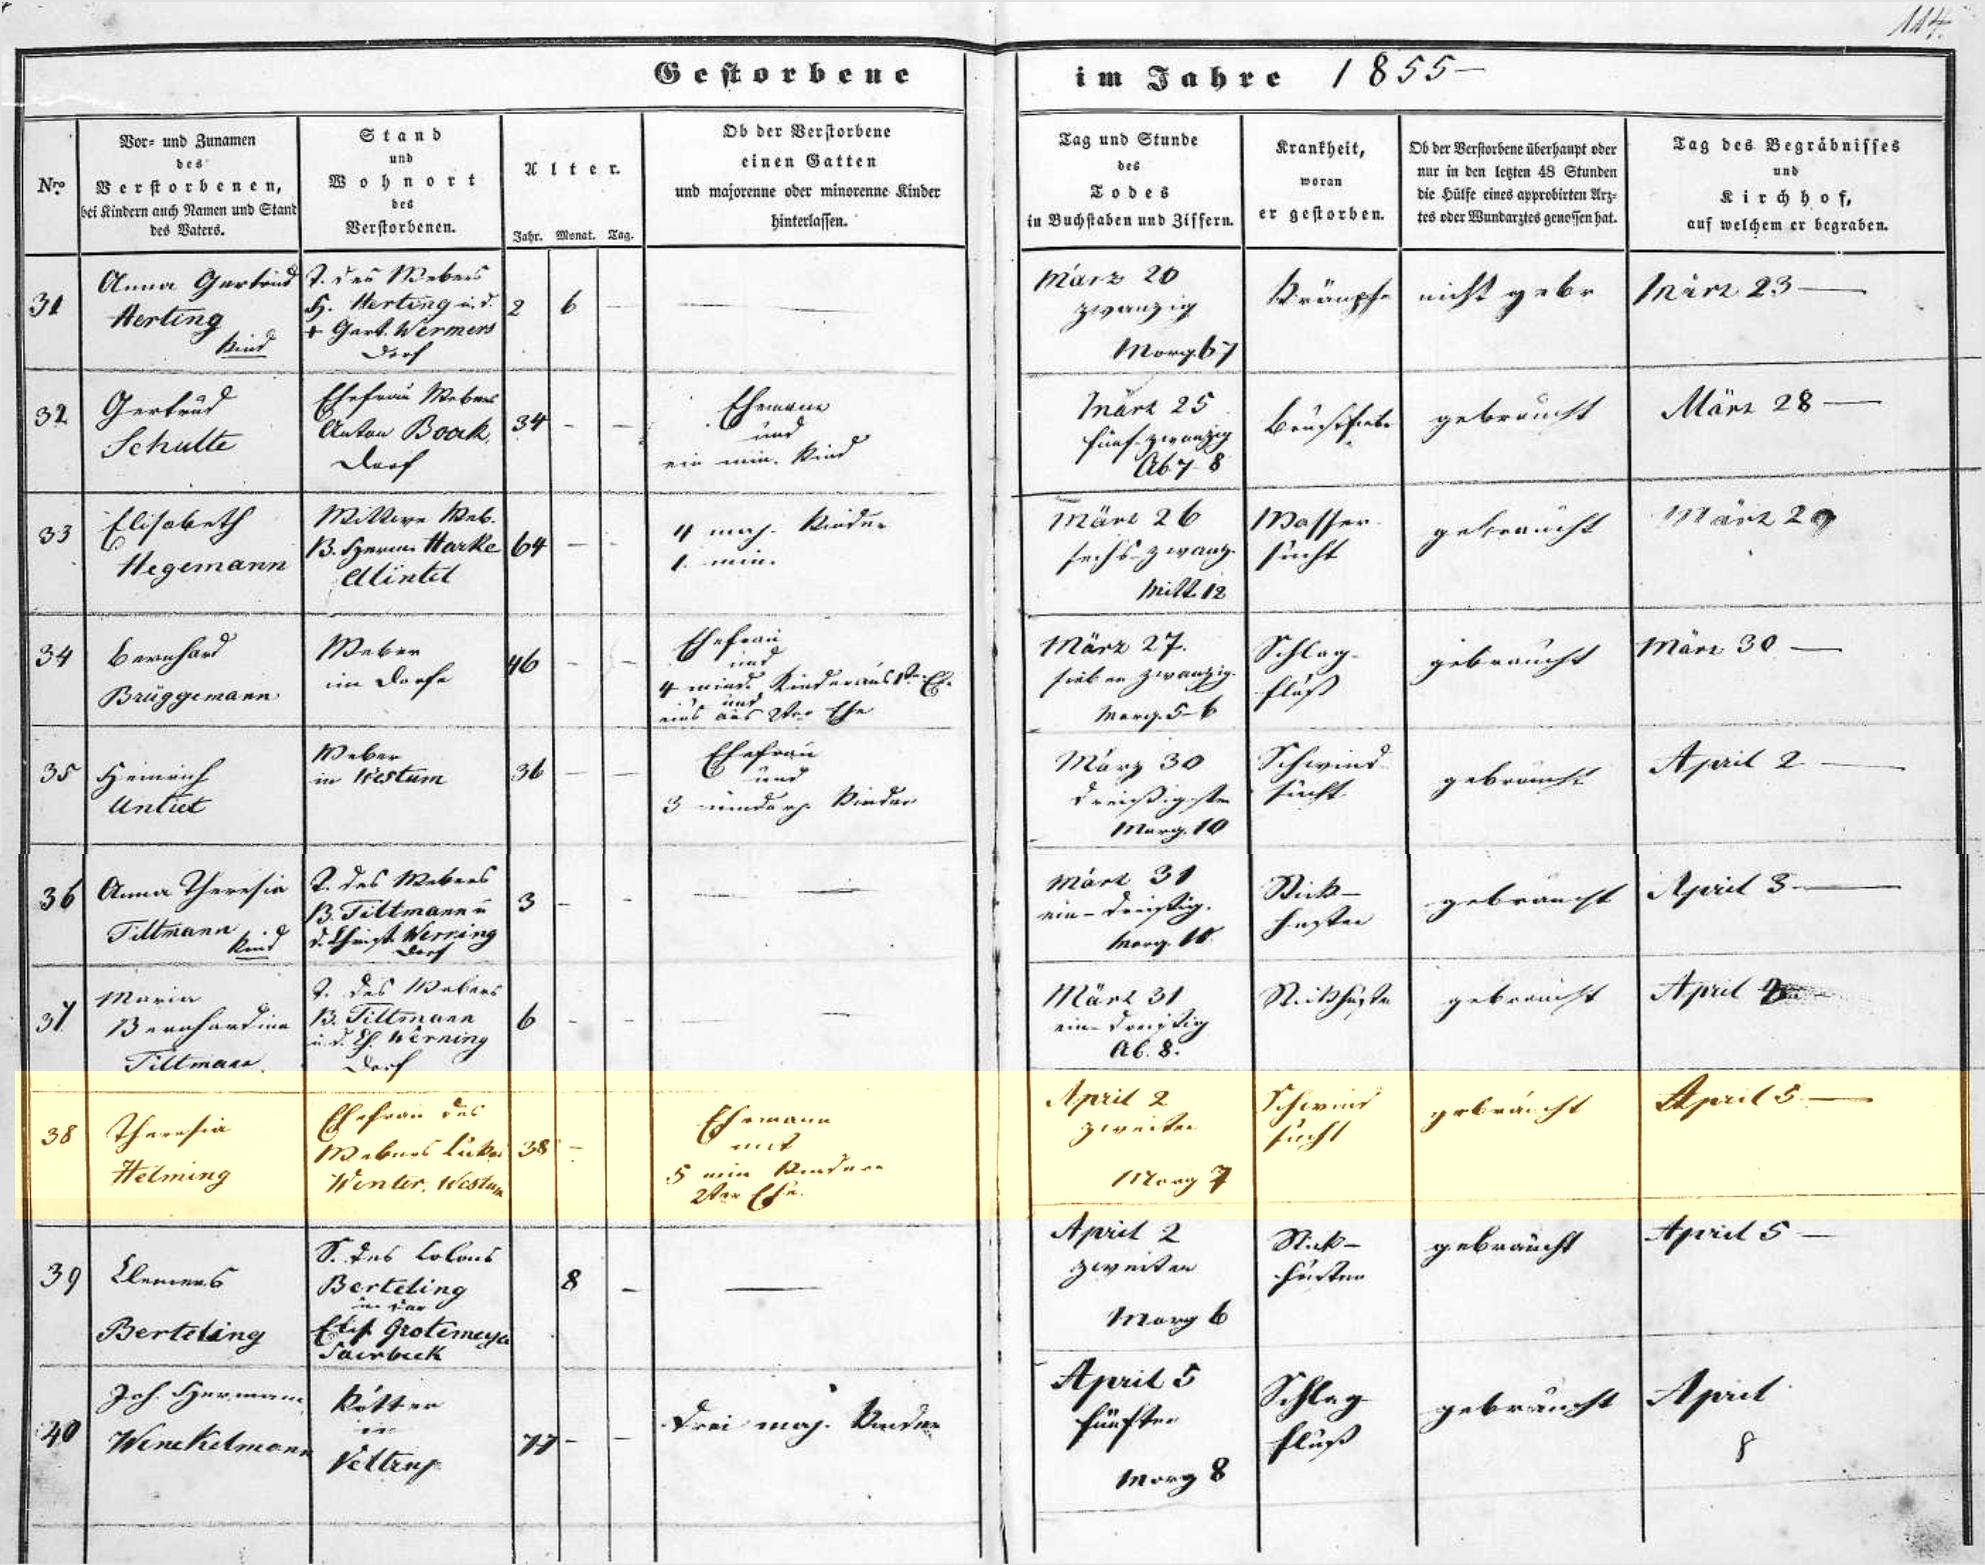 114.
Gestorbene im Jahre 1855
Nro
Vor= und Zunamen
des
Verstorbenen,
bei Kindern auch Namen und Stand
des Vaters.
Stand
und
Wohnort
des
Verstorbenen.
Alter.
Jahr. Monat. Tag.
Ob der Verstorbene
einen Gatten
und majorenne oder minorenne Kinder
hinterlassen.
Tag und Stunde
des
Todes
in Buchstaben und Ziffern.
Krankheit,
woran
er gestorben.
Ob der Verstorbene überhaupt oder
nur in den letzten 48 Stunden
die Hülfe eines approbirten Arz=
tes oder Wundarztes genossen hat.
Tag des Begräbnisses
und
Kirchhof,
auf welchem er begraben.
31
Anna Gertrud
Herting
Kind
T. des Webers
H. Herting u. d.
+ Gert. Wermers
Dorf
2 6 —
—
März 20
zwanzig
Morg. 6 7
Krämpfe
nicht gebr
März 23 —
32
Gertrud
Schulte
Ehefrau Webers
Anton Boock,
Dorf
34 – –
Ehemann
und
ein min. Kind
März 25
fünf-zwanzig
Ab. 7-8
Brustfieber
gebraucht
März 28 —
33
Elisabeth
Hegemann
Wittwe Web.
B. Herm. Harke
64 – –
4 maj. Kinder
1 min.
März 26
sechs-zwanz.
Mitt. 12
Wasser-
sucht
gebraucht
März 29
34
Bernhard
Brüggemann
Weber
im Dorfe
46 – –
Ehefrau
und
4 mind. Kinder aus 1ter Eh.
und
eins aus 2ter Ehe
März 27.
sieben zwanzig.
Morg. 5-6
Schlag-
fluß
gebraucht
März 30 —
35
Heinrich
Untiet
Weber
in Westum
36 – –
Ehefrau
und
3 minderj. Kinder
März 30
dreißigsten
Morg. 10
Schwind-
sucht
gebraucht
April 2 —
36
Anna Theresia
Tiltmann
Kind
T. des Webers
B. Tiltmann u
d. Christ. Werning
Dorf
3 – –
—
März 31
ein-dreißig.
Morg. 10
Stick-
husten
gebraucht
April 3 —
37
Maria
Bernhardina
Tiltmann.
T. des Webers
B. Tiltmann
u. d. Ch. Werning
Dorf
6 – –
—
März 31
ein-dreißig
Ab. 8.
Stickhusten
gebraucht
April
38
Theresia
Helming
Ehefrau des
Webers Lukas
Winter. Westum
38 –
Ehemann
mit
5 min Kindern
2ter Ehe.
April 2
zweiten
Morg 7
Schwind
sucht
gebraucht
April 5 —
39
Clemens
Berteling
S. des Colons
Berteling
und der
Elis. Grotemeyer
Saerbeck
8 –
—
April 2
zweiten
Morg 6
Stick-
husten
gebraucht
April 5 —
40
Joh. Hermann
Winckelmann
Kötter
in
Veltrup
77 – –
Drei maj. Kinder
April 5
fünften
Morg 8
Schlag
fluß
gebraucht
April
8